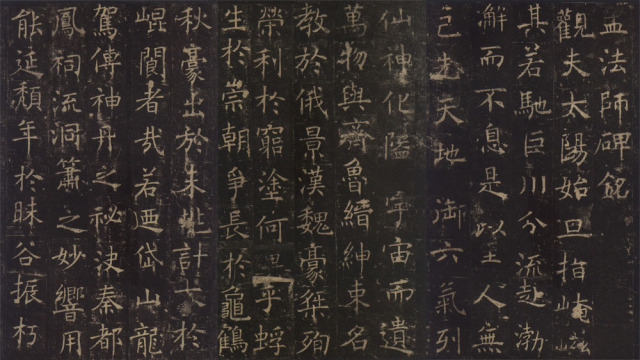 孟法師碑銘
觀夫太陽始旦指崦嵫
其若馳巨川分流赴渤
澥而不息是以至人無
己先天地御六氣列
仙神化隘宇宙而遺
萬物與齊魯縉紳束名
教於俄景漢魏豪桀殉
榮利於窮塗何異乎蜉
生於崇朝爭長於龜鶴
秋豪出於未兆計大於
崐閬者哉若迺岱山龍
駕傳神丹之秘決秦都
鳳祠流洞簫之妙響用
能延頹年於昧谷振朽